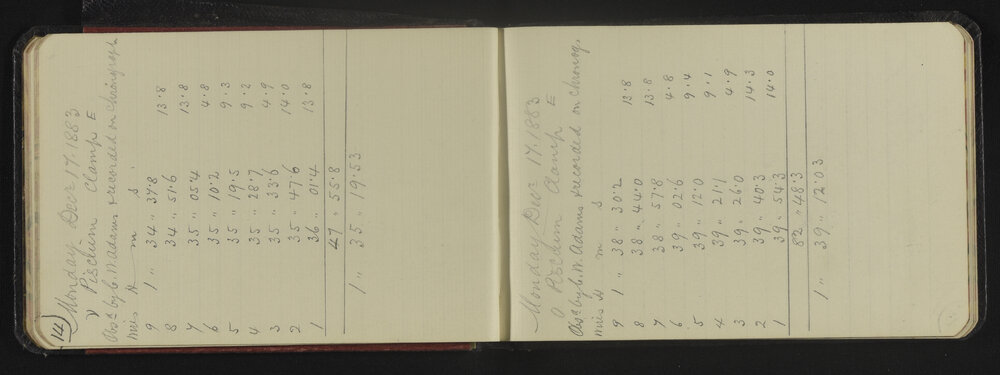 14)
Monday Decr 17. 1883
ν Piscium Clamp E
Obsd by C. W. Adams & recorded on Chronograph
Wires h m s
9 1 " 34 " 37.8 13.8
8 34 " 51.6 13.8
7 35 " 05.4 4.8
6 35 " 10.2 9.3
5 35 " 19.5 9.2
4 35 " 28.7 4.9
3 35 " 33.6 14.0
2 35 " 47.6 13.8
1 36 " 01.4
47 " 55.8
1 " 35 " 19.53
Monday Decr 17. 1883
o Piscium Clamp E
Obsd by C. W. Adams & recorded on Chronog.
Wires h m s
9 1 " 38 " 30.2 13.8
8 38 " 44.0 13.8
7 38 " 57.8 4.8
6 39 " 02.6 9.4
5 39 " 12.0 9.1
4 39 " 21.1 4.9
3 39 " 26.0 14.3
2 39 " 40.3 14.0
1 39 " 54.3
82 " 48.3
1 " 39 " 12.03